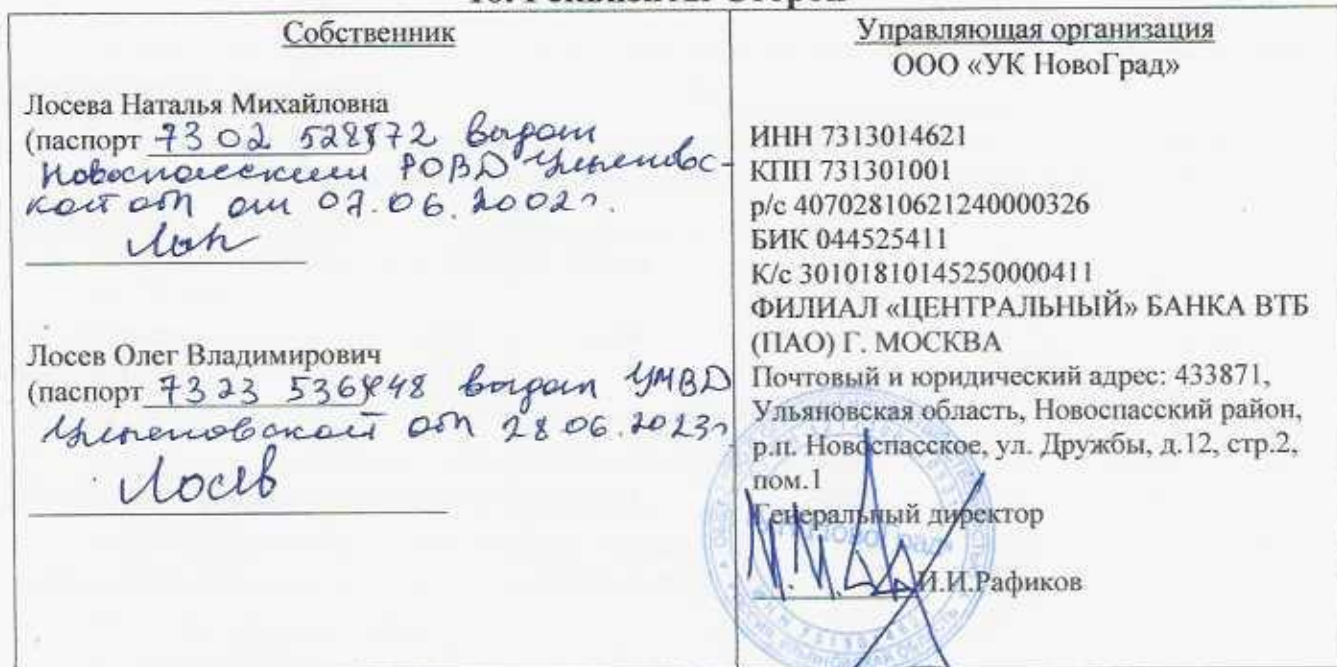 Собственник
Лосева Наталья Михайловна
(паспорт 73 02 528872 выдан
Новоспасским РОВД Ульяновс-
кой обл от 07.06.2002г.
Лосев Олег Владимирович
(паспорт 73 23 536448 выдан УМВД
Ульяновской обл 28.06.2023г
Лосев
Управляющая организация
ООО «УК НовоГрад»
ИНН 7313014621
КПП 731301001
р/с 40702810621240000326
БИК 044525411
К/с 30101810145250000411
ФИЛИАЛ «ЦЕНТРАЛЬНЫЙ» БАНКА ВТБ
(ПАО) Г. МОСКВА
Почтовый и юридический адрес: 433871,
Ульяновская область, Новоспасский район,
р.п. Новоспасское, ул. Дружбы, д.12, стр.2,
пом.1
Генеральный директор
И.И.Рафиков